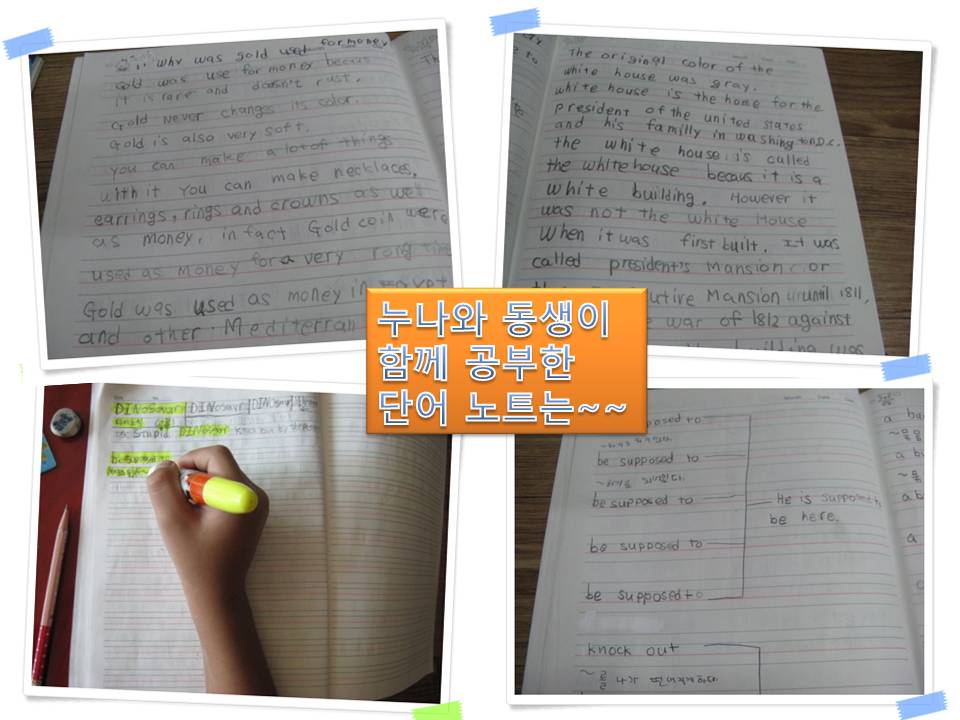 why was gold used for money
Gold was use for money becaus
it is rare and doesn't rust.
Gold never changes its color.
Gold is also very soft.
you can make a lot of things
with it You can make necklaces,
earrings, rings and crowns as well
as money. in fact Gold coin were
used as money for a very rong time
Gold was used as money in
and other Mediterran
The original color of the
white house was gray.
white house is the home for the
president of the united states
and his familly in washington D.C.
the white house is called
the white house becaus it is a
white building. However it
was not the white House
When it was first built. it was
called president's Mansion or
Mansion until 1811,
war of 1812 against
building was
누나와 동생이
함께 공부한
단어 노트는~~
DINosaur DINosaur DINOsaur
Stupid DINosaur
be supposed to
posed to
be supposed to
be supposed to
He is supposed to
be here.
be supposed to
be supposed to
knock out